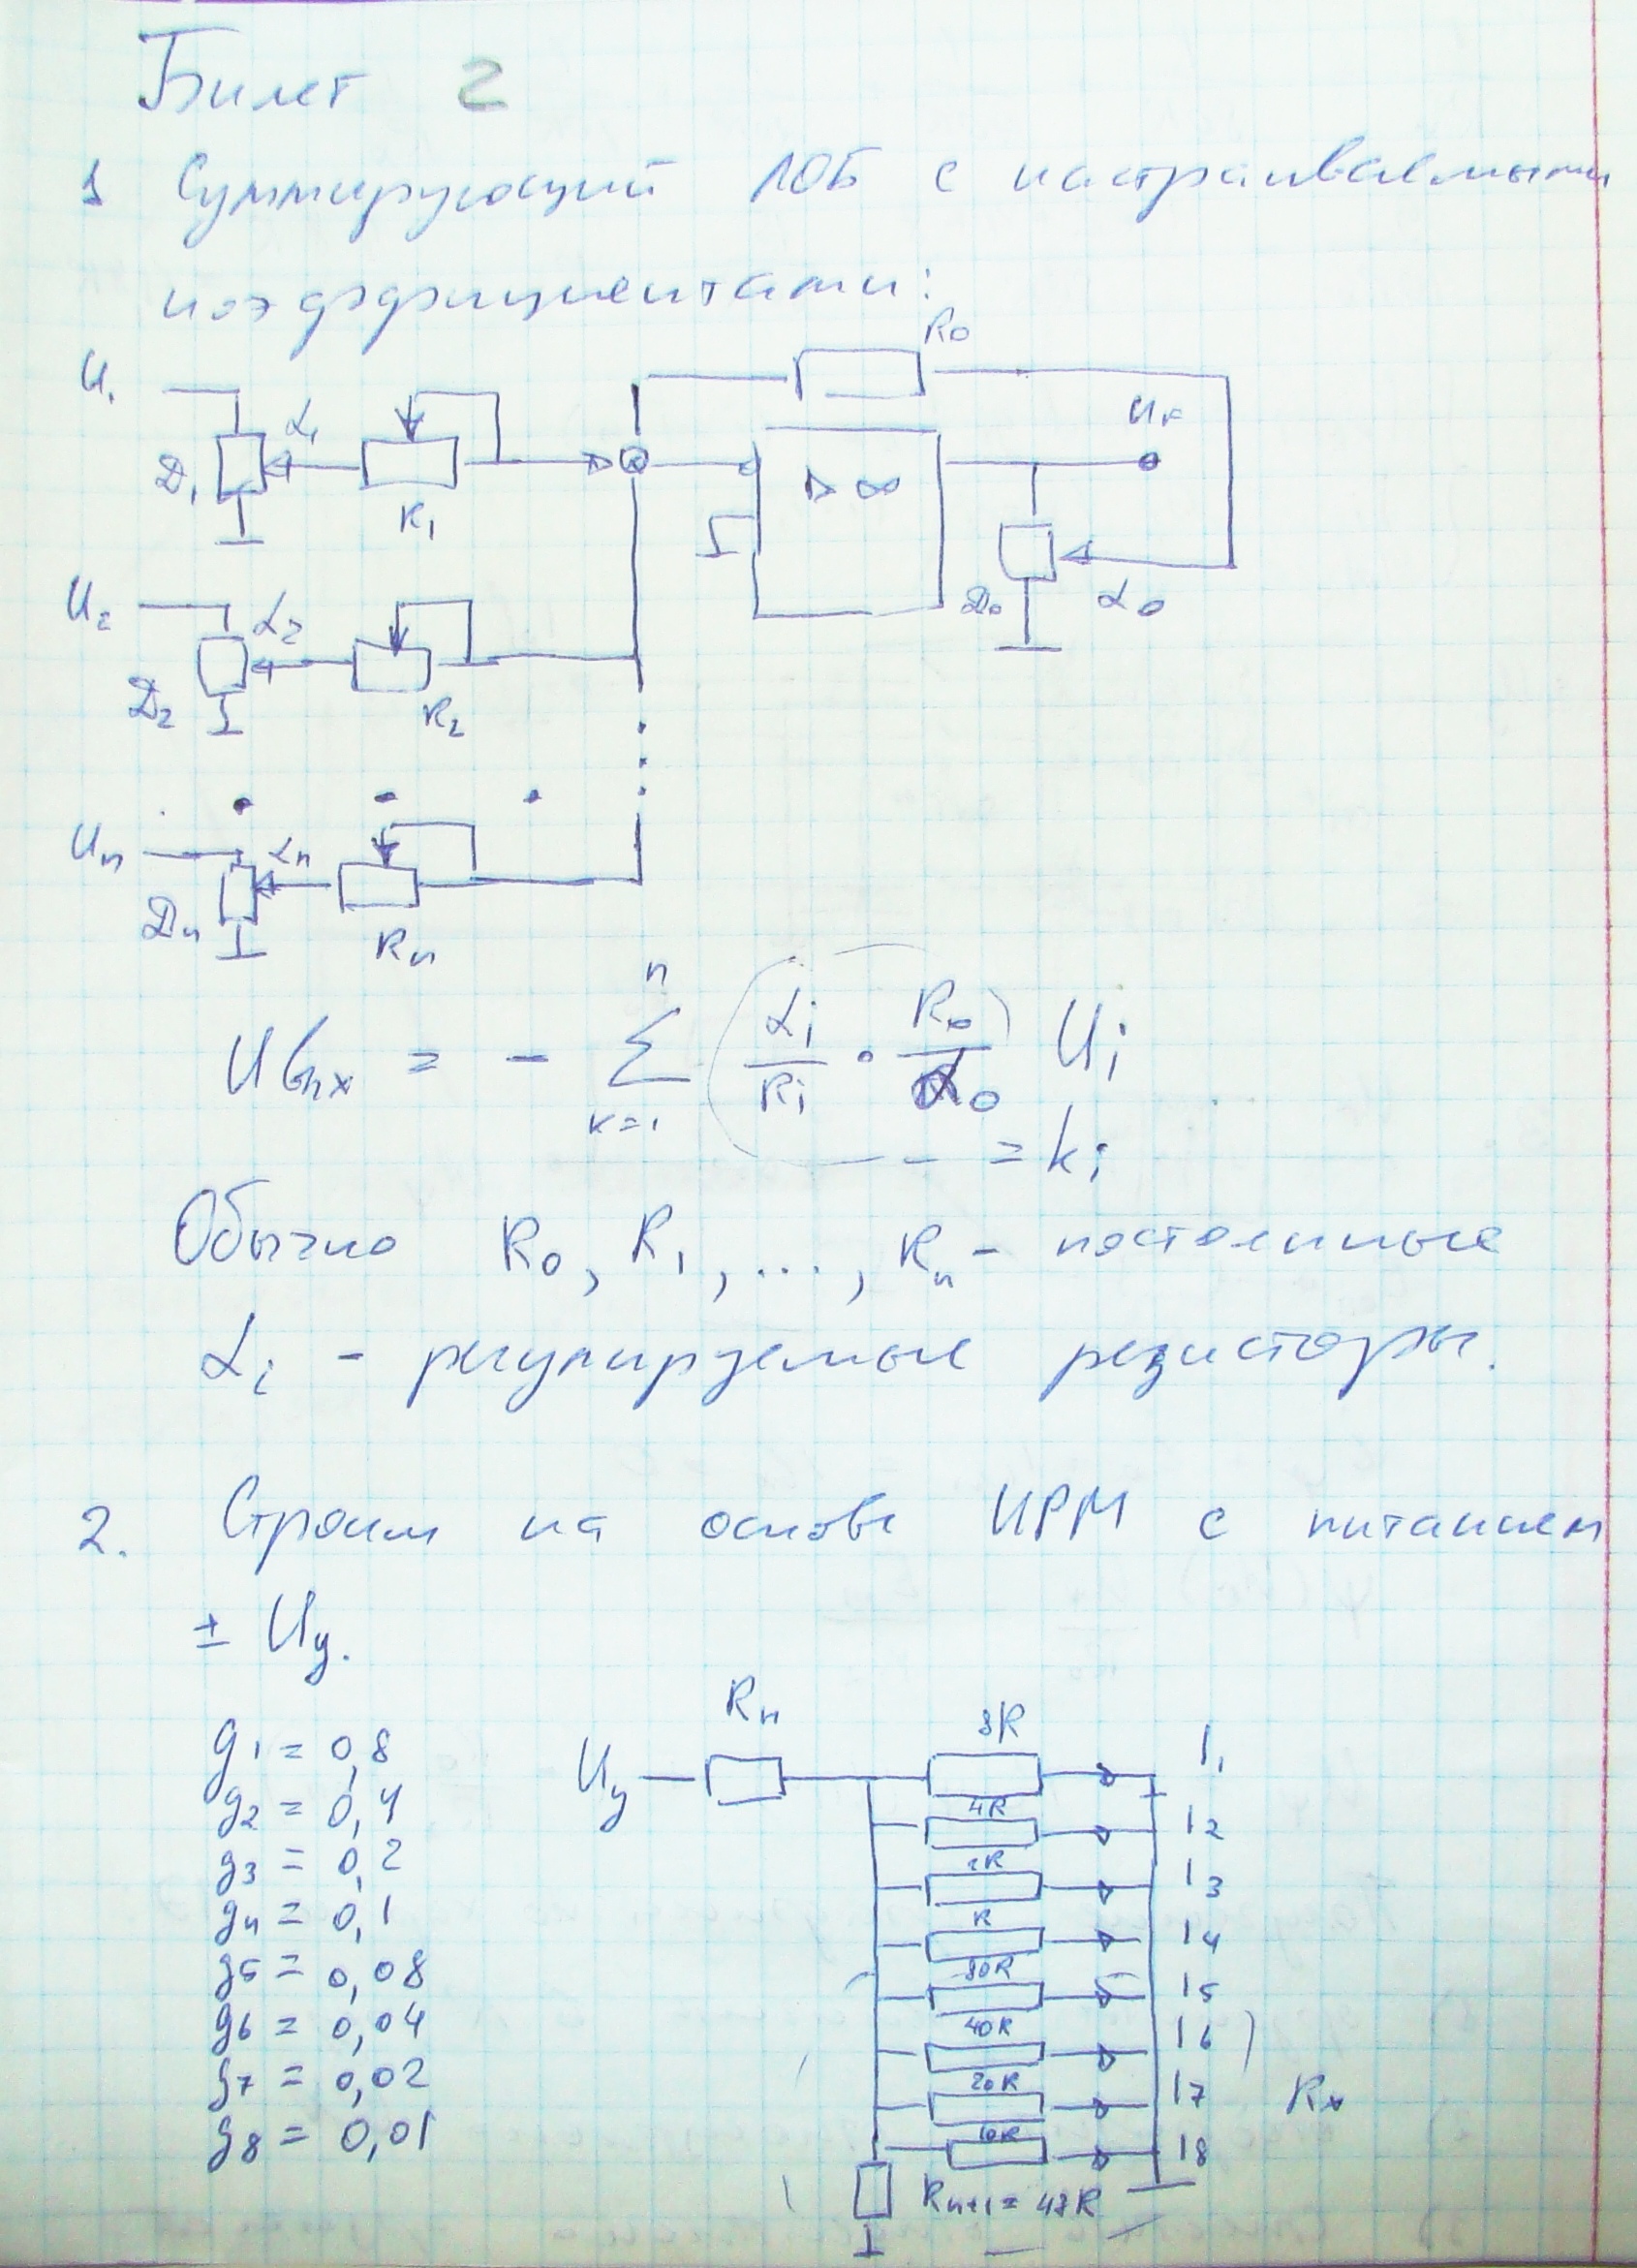 Билет 2
1 Суммирующий ЛОБ с настраиваемыми
коэффициентами:
R₀
U₁ α₁ Uₙ
Д₁ R₁ ▷ ∞
Д₀ α₀
U₂ α₂
Д₂ R₂
Uₙ αₙ
Дₙ Rₙ
Uвых = - Σ (αᵢ/Rᵢ · R₀/α₀) Uᵢ
n
k=1
= kᵢ
Обычно R₀, R₁, ..., Rₙ - постоянные
αᵢ - регулируемые резисторы.
2. Строим на основе ИРМ с питанием
± Uу.
g₁ = 0,8
g₂ = 0,4
g₃ = 0,2
g₄ = 0,1
g₅ = 0,08
g₆ = 0,04
g₇ = 0,02
g₈ = 0,01
Uу Rн
8R I₁
4R I₂
2R I₃
R I₄
80R I₅
40R I₆
20R I₇ Rₓ
10R I₈
Rₙ₊₁ = 48R